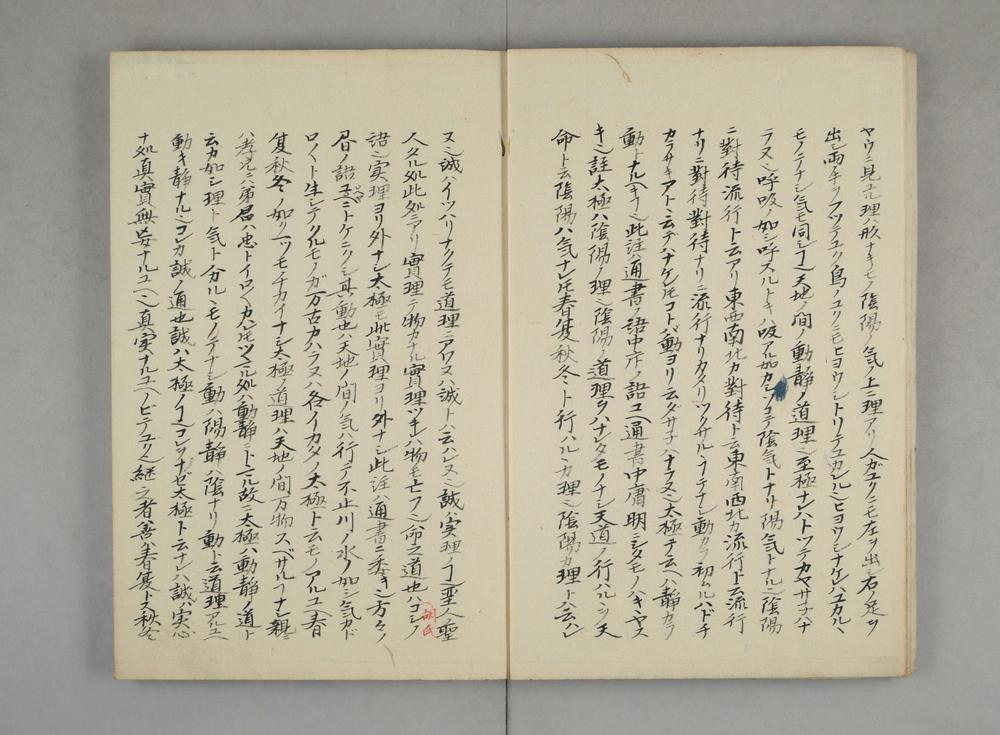 ヤウニ見ユル理ハ形ナキモノ陰陽ノ気ノ上ニ理アリ人ガユクニモ左ヲ出シ右ノ足ヲ
出シ両手ヲフツテユク鳥ノユクニモヒヨウシトリテユカレルヒヨウシナケレハユカルヽ
モノテナシ気モ同シ天地ノ間ノ動静ノ道理至極ナレハトツテカヤサ子ハナ
ラヌ呼吸ノ如シ呼スルトキハ吸アル如カシツテ陰気トナリ陽気トナル陰陽
ニ對待流行ト云アリ東西南北カ對待ト云東南西北カ流行ト云流行
ナリニ對待對待ナリニ流行ナリカタリツクサルヽテナシ動カラ初ルハドチ
カラサキアト云デハナケレモコトバ動ヨリ云ダサ子ハナラヌ太極ナ云ヘハ静カラ
動トナルキ此注ハ通書ノ語中庸ノ語ユヘ通書中庸明シタモノハキヤス
キ註太極ハ陰陽ノ理陰陽ノ道理ヲハナレタモノナシ天道ノ行ハルヽヲ天
命ト云陰陽ハ気ナレモ春夏秋冬ト行ハルヽカ理陰陽カ理トハ云ハレ
ヌ誠ハイツハリナクテモ道理ニアワヌハ誠トハ云ハレヌ誠ハ実理ノ聖人聖
人タル処此処ニアリ實理テ物カナル實理ツキレハ物モ亡フ命之道也ハコシノ
胡氏
語実理ヨリ外ナシ太極モ此實理ヨリ外ナシ此注ハ通書ニ委キ方々ノ
君ノ語ユヘニトケニクシ其動也ハ天地ノ間ノ気ハ行テ不止川ノ水ノ如シ気カド
ロ〱ト生シテクルモノガ万古カハラヌハ各イイカタノ太極ト云モノアルユヘ春
夏秋冬ノ如ク一ツモチカイナシ太極ノ道理ハ天地ノ間万物スベサルナシ親
ハ孝兄ニハ弟君ハ忠トイロ〱カハレモツマル処ハ動静ニトマル故ニ太極ハ動静ノ道ト
云カ如シ理ト気ト分ルヽモノテナシ動ハ陽静ハ陰ナリ動ト云道理アルユヘ
動キ静ナルコレカ誠ノ通也誠ハ太極ノコレヲナゼ太極ト云ナレハ誠ハ実心
ナ処真實無妄ナルユヘ真実ナルユヘノビテユク継之者善ハ春夏トス秋冬